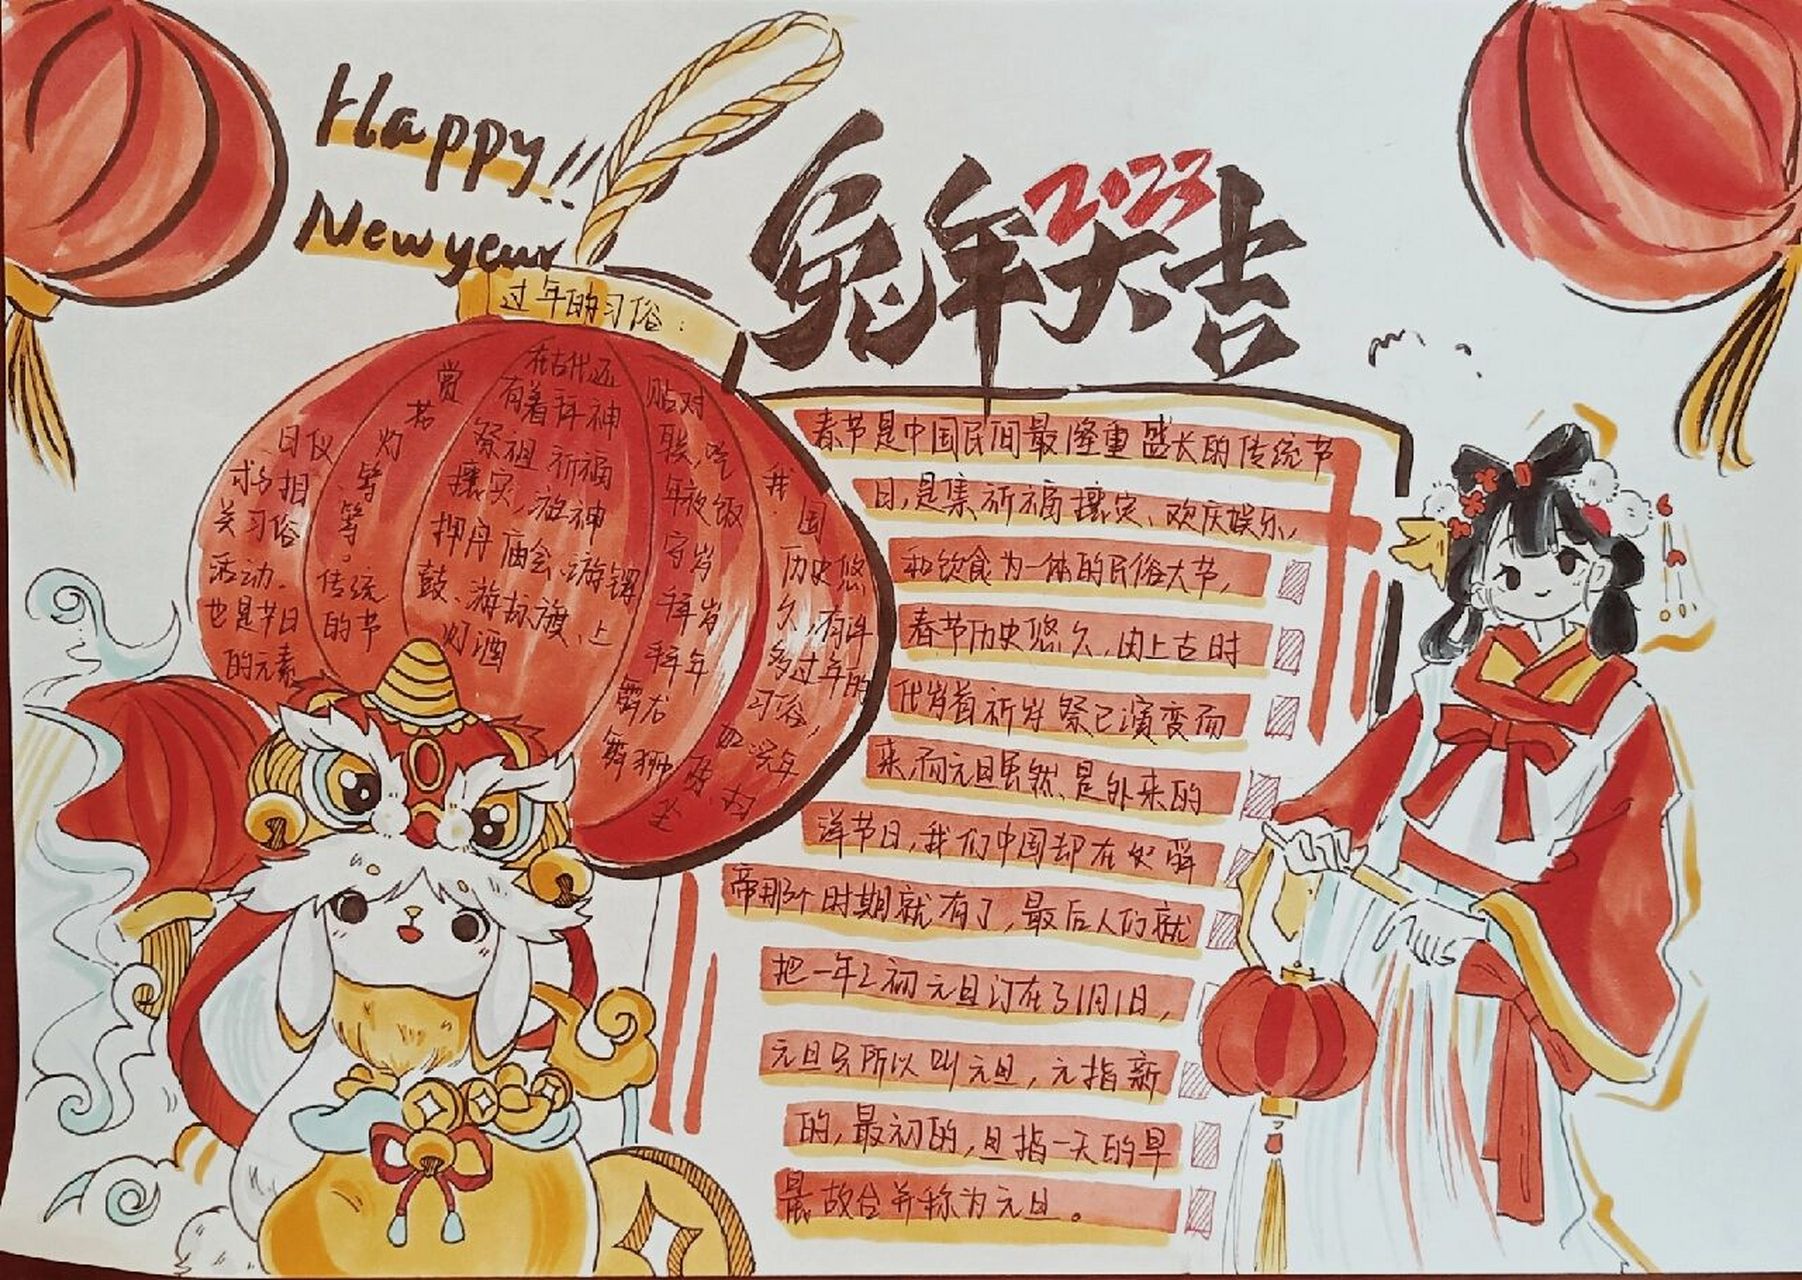 Happy!!
New year
兔年大吉
2023
过年的习俗:
我国
历史悠
久,有许
多过年的
习俗,
贴对
联,吃
年夜饭
守岁
拜岁
拜年
舞龙
舞狮
在古代还
有着拜神
祭祖 祈福
攘灾,游神
押舟 庙会、游锣
鼓、游标旗、上
灯酒
赏
灯
等
等。
传统
的节
日仪
式与相
关习俗
活动。
也是节日
的元素
春节是中国民间最隆重盛长的传统节
日,是集祈福攘灾、欢庆娱乐,
和饮食为一体的民俗大节,
春节历史悠久,由上古时
代岁首祈岁祭已演变而
来,而元旦虽然是外来的
洋节日,我们中国却在
帝那个时期就有了,最后人们就
把一年之初元旦订在了1月1日,
元旦 所以叫元旦,元指新
的,最初的,旦指一天的早
晨故合并称为元旦。